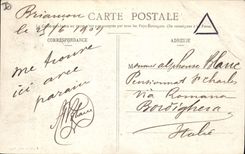 Briançon
CARTE POSTALE
le 25/6 1909
CORRESPONDANCE
ADRESSE
me trouve
ici avec
parain
ABlanc
Alphonse Blanc
Pensionnat St Charles
Via Romana
Bordighera
Italie